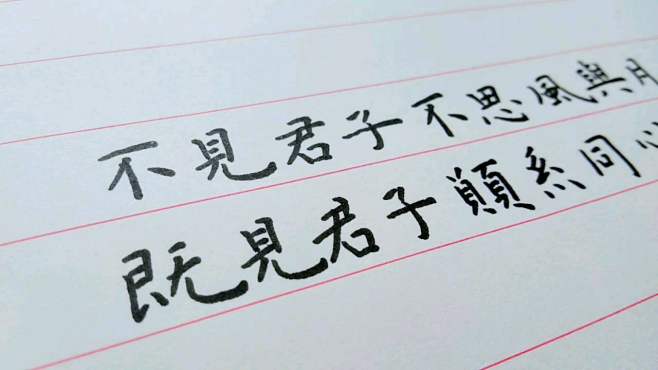 不見君子不思風與月
既見君子顛系同心